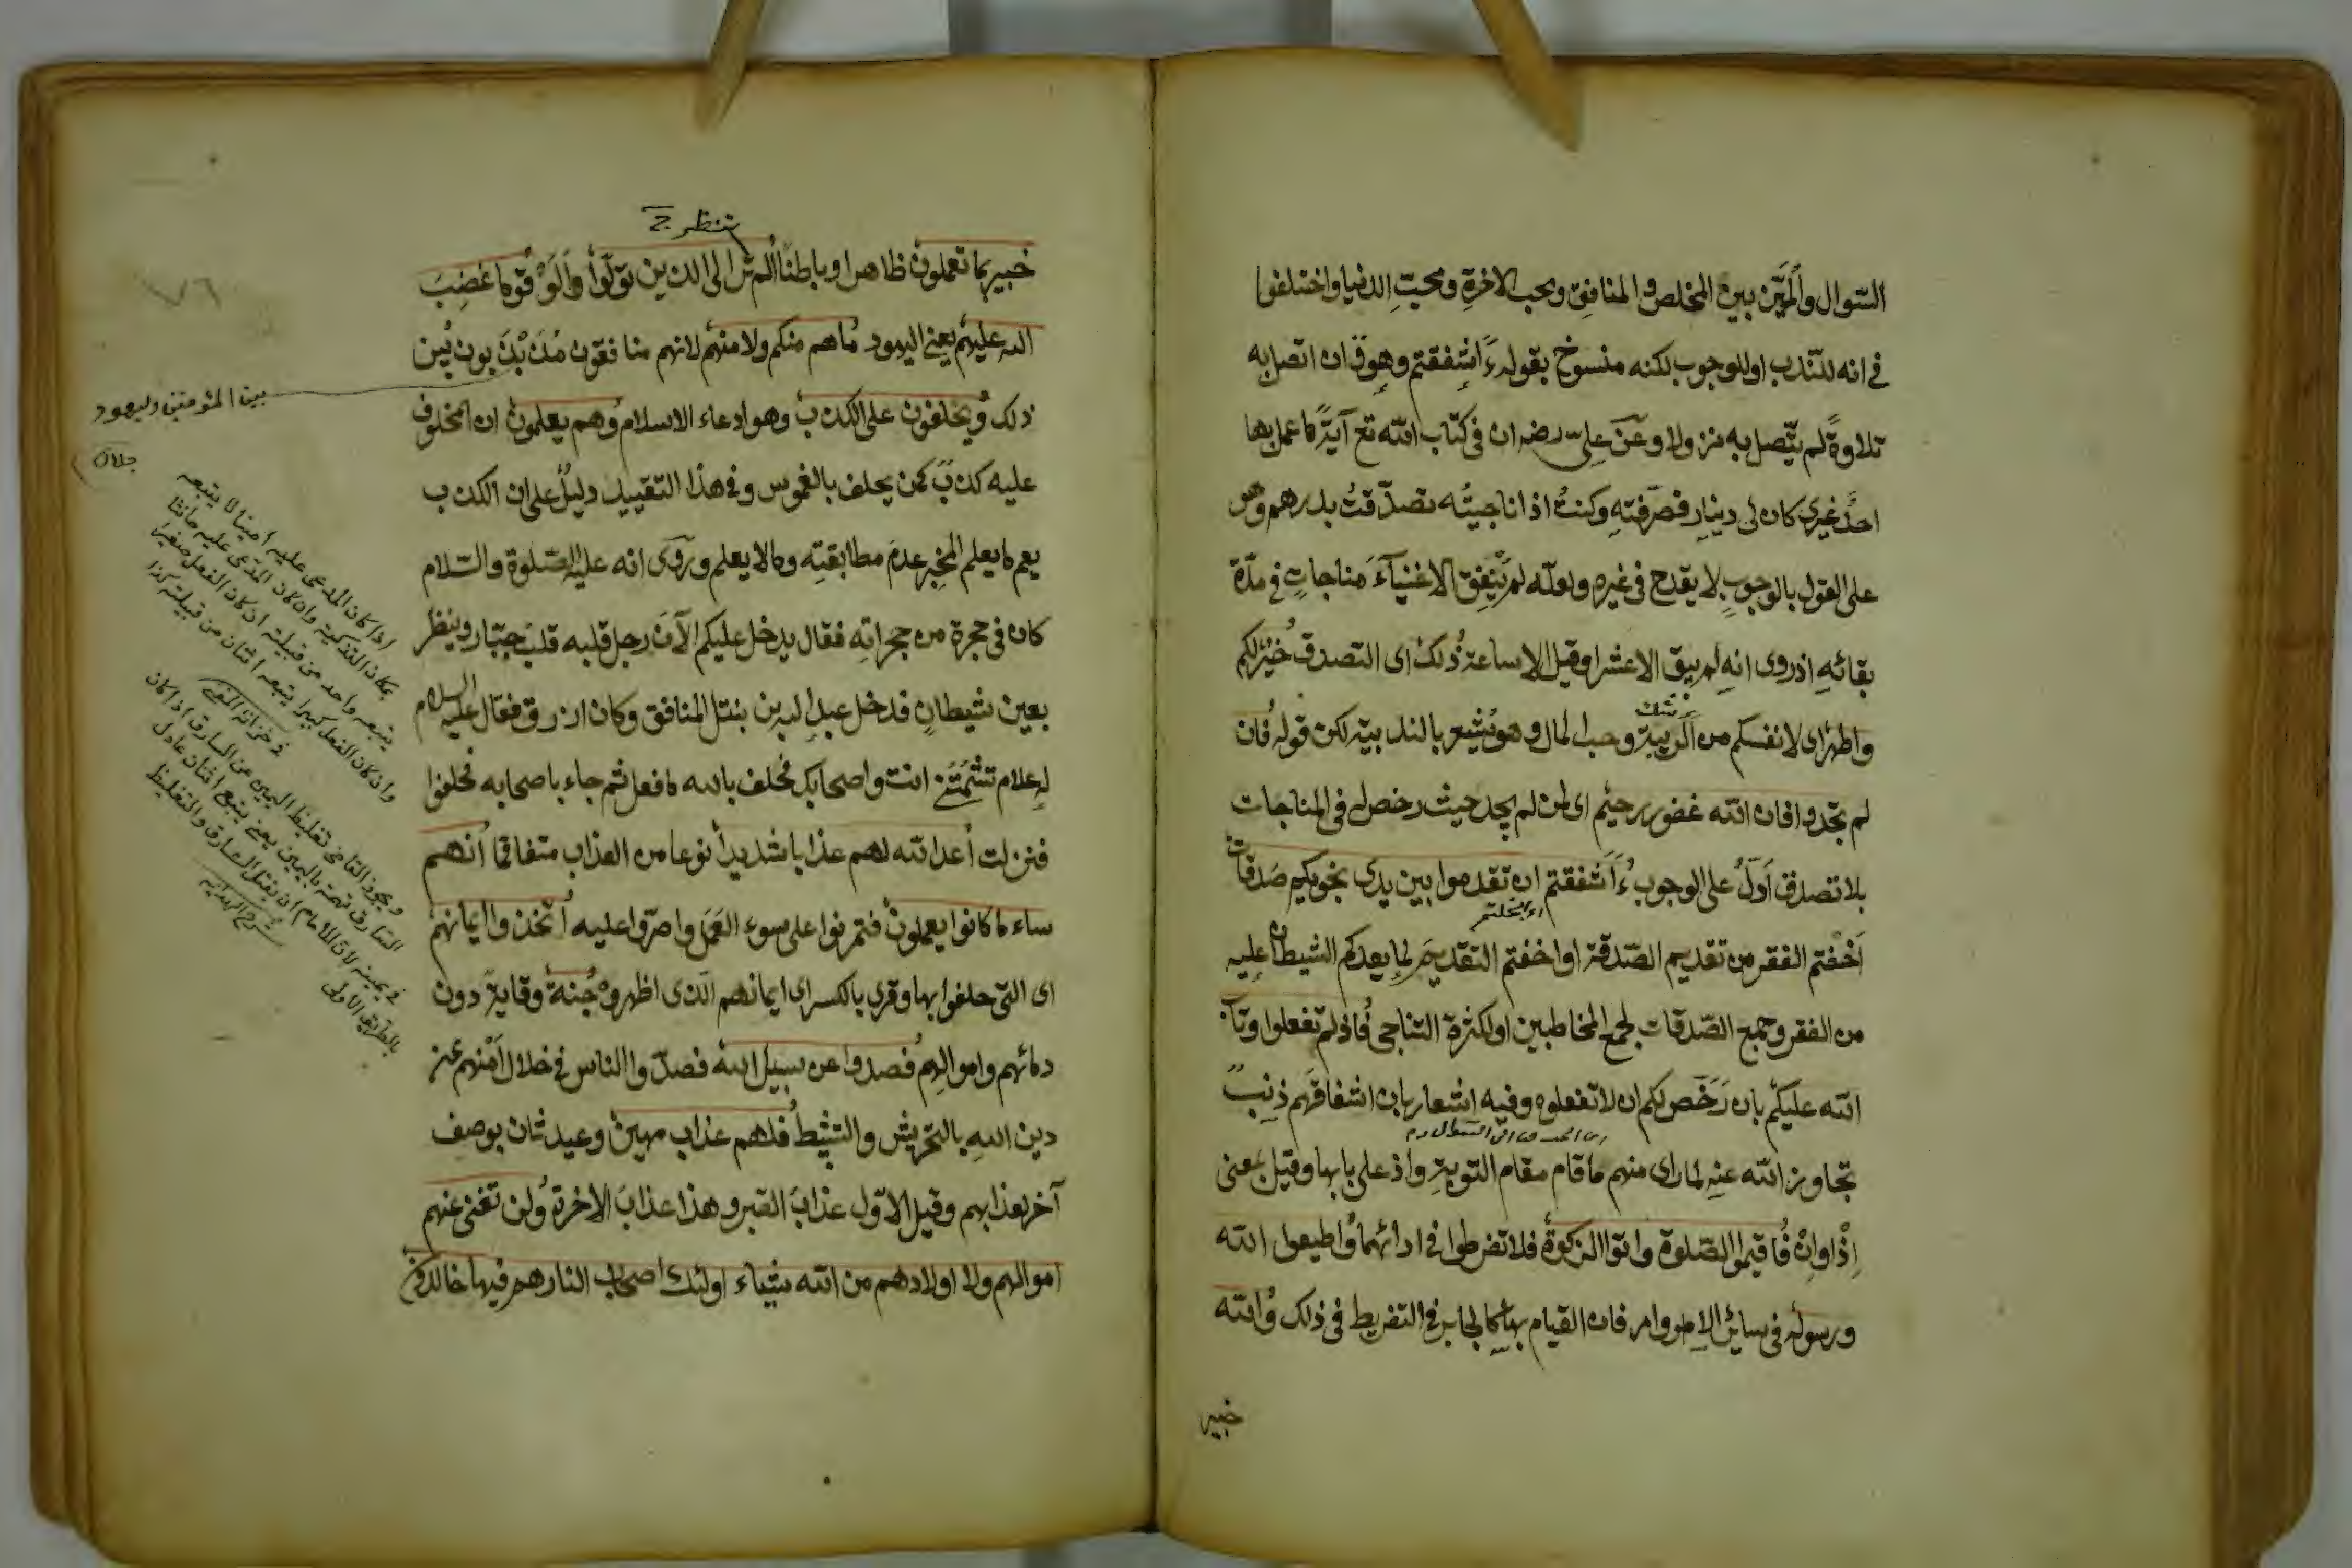 السّوال والميّز بين المخلص والمنافق ومحب الاخرة ومحبّ الدنيا واختلفوا
في انه للنّدب او للوجوب لكنه منسوخ بقوله ءَاَشفقتم وهو ان اتصل به
تلاوةً لم يتّصل به نزولا وعن علىّ رضه ان في كتاب الله تع آيةً ما عمل بها
احدٌ غيري كان لى دينار فصرّفته وكنتُ اذا ناجيتُه تصدّقتُ بدرهم وهو
على القول بالوجوب لا يقدح في غيره ولعلّه لم يتّفق للاغنيآء مناجات في مدّة
بقائه اذ روى انه لم يبق الا عشرا وقيل الا ساعة ذلك اى التصدق خيرٌ لكم
واطهر اى لانفسكم من الريبة وحب المال وهو يُشعر بالندبية لكن قوله فان
شك
لم تجدوا فان الله غفور رحيم اى لمن لم يجد حيث رخص له في المناجات
بلا تصدق اَدَلّ على الوجوب ءَاَشفقتم ان تقدموا بين يدى نجويكم صدقات
اَخفتم الفقر من تقديم الصّدقة او اخفتم التقديم لما يعدكم الشيطان عليه
من الفقر وجمع الصّدقات لجمع المخاطبين او لكثرة التناجى فاذ لم تفعلوا وتاب
الله عليكم بان رَخّص لكم ان لا تفعلوه وفيه اشعار بان اشفاقهم ذنبٌ
تجاوز الله عنه لما راى منهم ما قام مقام التوبة واذ على بابها وقيل بمعنى
اِذْا وان فاقيموا الصّلوة واتوا الزكوة فلا تفرطوا في ادائهما واطيعوا الله
ورسوله في سائر الاوامر فان القيام بها كالجابر للتفريط في ذلك والله
خبير
تنظر ج
خبير بما تعملون ظاهرا وباطنا الم تر الى الذين تولّوا والَوْ قوما غضِبَ
الله عليهم يعنى اليهود ما هم منكم ولا منهم لانهم منافقون مُذَبْذَبون بين
ذلك ويحلفون على الكذب وهو ادعاء الاسلام وهم يعلمون ان المحلوف
عليه كذبٌ كمن يحلف بالغموس وفي هذا التقييد دليلٌ على ان الكذب
يعم ما يعلم المخبر عدمَ مطابقته وما لا يعلم ورُوى انه عليه الصّلوة والسّلام
كان في حجرة من حجراته فقال يدخل عليكم الآن رجل قلبه قلبُ جبّار وينظر
بعين شيطان فدخل عبد الله بن نبتل المنافق وكان ازرق فقال عليه السلام
له علام تشتمنى انت واصحابك فحلف بالله ما فعل ثم جاء باصحابه فحلفوا
فنزلت اعد الله لهم عذابا شديدا نوعا من العذاب متفاقما انهم
ساء ما كانوا يعملون فتمرنوا على سوء العَمَل واصرّوا عليه اتخذوا ايمانهم
اى التى حلفوا بها وقرى بالكسر اى ايمانهم الذى اظهروه جُنةً وقايةً دون
دمائهم واموالهم فصدوا عن سبيل الله فصدّوا الناس في خلال اَمْنهم عن
دين الله بالتحريش والتثبيط فلهم عذاب مهين وعيد ثان بوصف
آخر لعذابهم وقيل الاوّل عذابُ القبر وهذا عذابُ الاخرة لن تغنى عنهم
اموالهم ولا اولادهم من الله شيئا اولئك اصحاب النار هم فيها خالدون
٧٦
بين المئومنين وليهود
جلال
اذا كان المدعى عليه امينا لا يتبعه
يتبعه واحد من قبيلته ان كان الفعل صغيرا
وان كان الفعل كبيرا يتبعه اثنان من قبيلته كذا
في خزانة المفتى
ويجوز القاضى تغليظ اليمين عن السارق اذا كان
السارق تهمة باليمين يعنى يتبع اثنان عادل
في يمينه لان للامام ان يقتل السارق والتغليظ
بالطريق الاولى